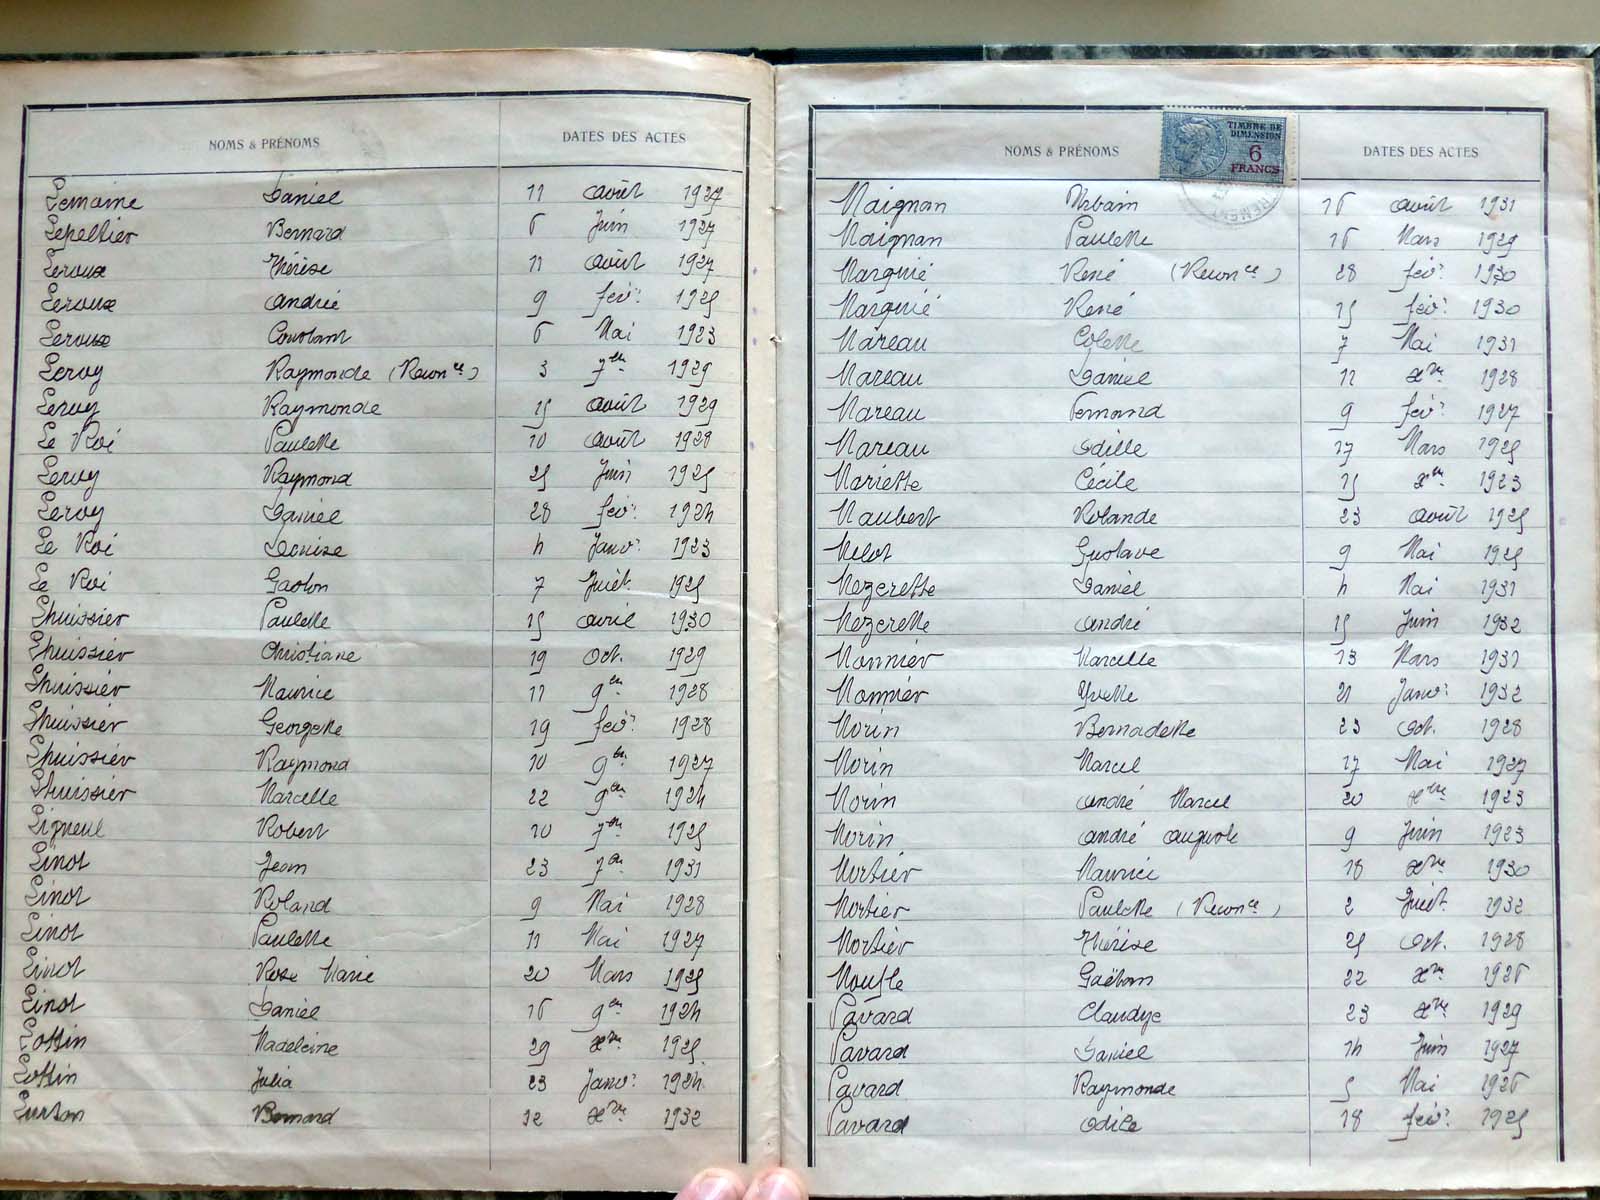 NOMS & PRÉNOMS DATES DES ACTES
Lemoine Daniel 11 août 1927
Lepeltier Bernard 6 Juin 1927
Leroux Thérèse 11 août 1927
Leroux andré 9 fév: 1925
Leroux Constant 6 Mai 1923
Leroy Raymonde (Reconce) 3 7bre 1929
Leroy Raymonde 15 août 1929
Le Roi Paulette 10 août 1928
Leroy Raymond 25 Juin 1925
Leroy Daniel 28 fév: 1924
Le Roi Louise 4 Janv: 1923
Le Roi Gaston 7 Juillet 1925
Lhuissier Paulette 15 avril 1930
Lhuissier Christiane 19 Oct. 1929
Lhuissier Maurice 11 9bre 1928
Lhuissier Georgette 19 fév: 1928
Lhuissier Raymond 10 9bre 1927
Lhuissier Marcelle 22 9bre 1924
Ligneul Robert 10 7bre 1925
Linot Jean 23 7bre 1931
Linot Roland 9 Mai 1928
Linot Paulette 11 Mai 1927
Linot Rose Marie 20 Mars 1925
Linot Daniel 16 9bre 1924
Lottin Madeleine 29 Xbre 1925
Lottin Julia 23 Janv: 1924
Lurton Bernard 12 Xbre 1932
NOMS & PRÉNOMS DATES DES ACTES
TIMBRE DE
DIMENSION
6
FRANCS
Maignan Urbain 16 août 1931
Maignan Paulette 16 Mars 1929
Marquié René (Reconce) 28 fév: 1930
Marquié René 15 fév: 1930
Mareau Colette 7 Mai 1931
Mareau Daniel 12 Xbre 1928
Mareau Fernand 9 fév: 1927
Mareau Odille 17 Mars 1925
Mariette Cécile 15 Xbre 1923
Maubert Rolande 23 août 1925
Melot Gustave 9 Mai 1925
Mezerette Daniel 4 Mai 1931
Mezerette andré 15 Juin 1932
Monnier Marcelle 13 Mars 1931
Monnier Yvette 21 Janv: 1932
Morin Bernadette 23 Oct. 1928
Morin Marcel 17 Mai 1927
Morin andré Marcel 20 Xbre 1923
Morin andré auguste 9 Juin 1923
Mortier Maurice 18 Xbre 1930
Mortier Paulette (Reconce) 2 Juillet 1932
Mortier Thérèse 25 Oct. 1928
Moufle Gaëtan 22 Xbre 1926
Pavard Claudye 23 Xbre 1929
Pavard Daniel 14 Juin 1927
Pavard Raymonde 5 Mai 1926
Pavard Odile 18 fév: 1925